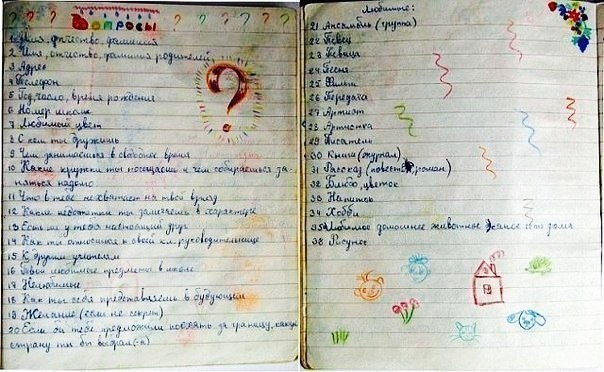 Вопросы
1 Имя, отчество, фамилия
2 Имя, отчество, фамилия родителей
3 Адрес
4 Телефон
5 Год, число, время рождения
6 Номер школы
7 Любимый цвет
8 С кем ты дружишь
9 Чем занимаешься в свободное время
10 Какие кружки ты посещаешь и чем собираешься за-
няться надолго
11 Что в тебе нехватает на твой взгляд
12 Какие недостатки ты замечаешь в характере
13 Есть ли у тебя настоящий друг
14 Как ты относишься к своей кл. руководительнице
15 К другим учителям
16 Твои любимые предметы в школе
17 Нелюбимые
18 Как ты себя представляешь в будующем
19 Желание (если не секрет)
20 Если бы тебе предложили поехать за границу, какую
страну ты бы выбрал(-а)
Любимые:
21 Ансамбль (группа)
22 Певец
23 Певица
24 Песня
25 Фильм
26 Передача
27 Артист
28 Артистка
29 Писатель
30 Книга (журнал)
31 Рассказ (повесть, роман)
32 Блюдо, цветок
33 Напиток
34 Хобби
35 Любимое домашнее животное дома
38 Рисунок